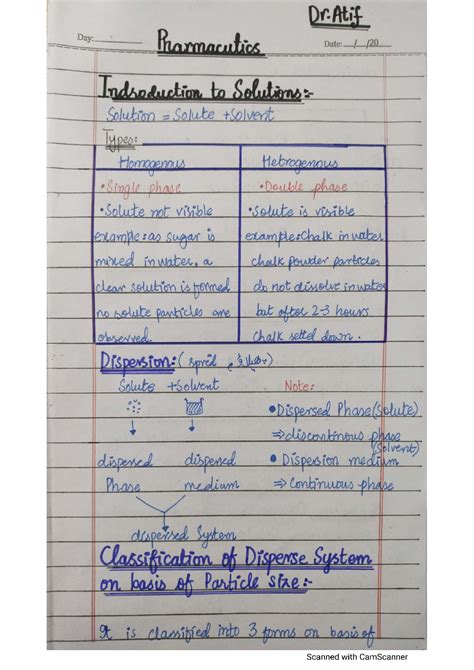 Dr. Atif
Day:
Pharmacutics
Date: / /20
Indroduction to Solutions:-
Solution = Solute + Solvent
Types:
Homogenous
Hetrogennous
• Single phase
• Solute not visible
example: as sugar is
mixed in water, a
clear solution is formed
no solute particles are
observed.
• Double phase
• Solute is visible
example: Chalk in water
chalk powder particles
do not dissolve in water
but after 2-3 hours
Chalk settel down.
Dispersion: ( spred
Solute + Solvent
dispersed
Phase
dispersed
medium
dispersed System
Note:
• Dispersed Phase (Solute)
⇒ discontinous phase
(Solvent)
• Dispersion medium
⇒ Continuous phase
Classification of Disperse System
on basis of Particle size:-
It is classified into 3 forms on basis of
Scanned with CamScanner